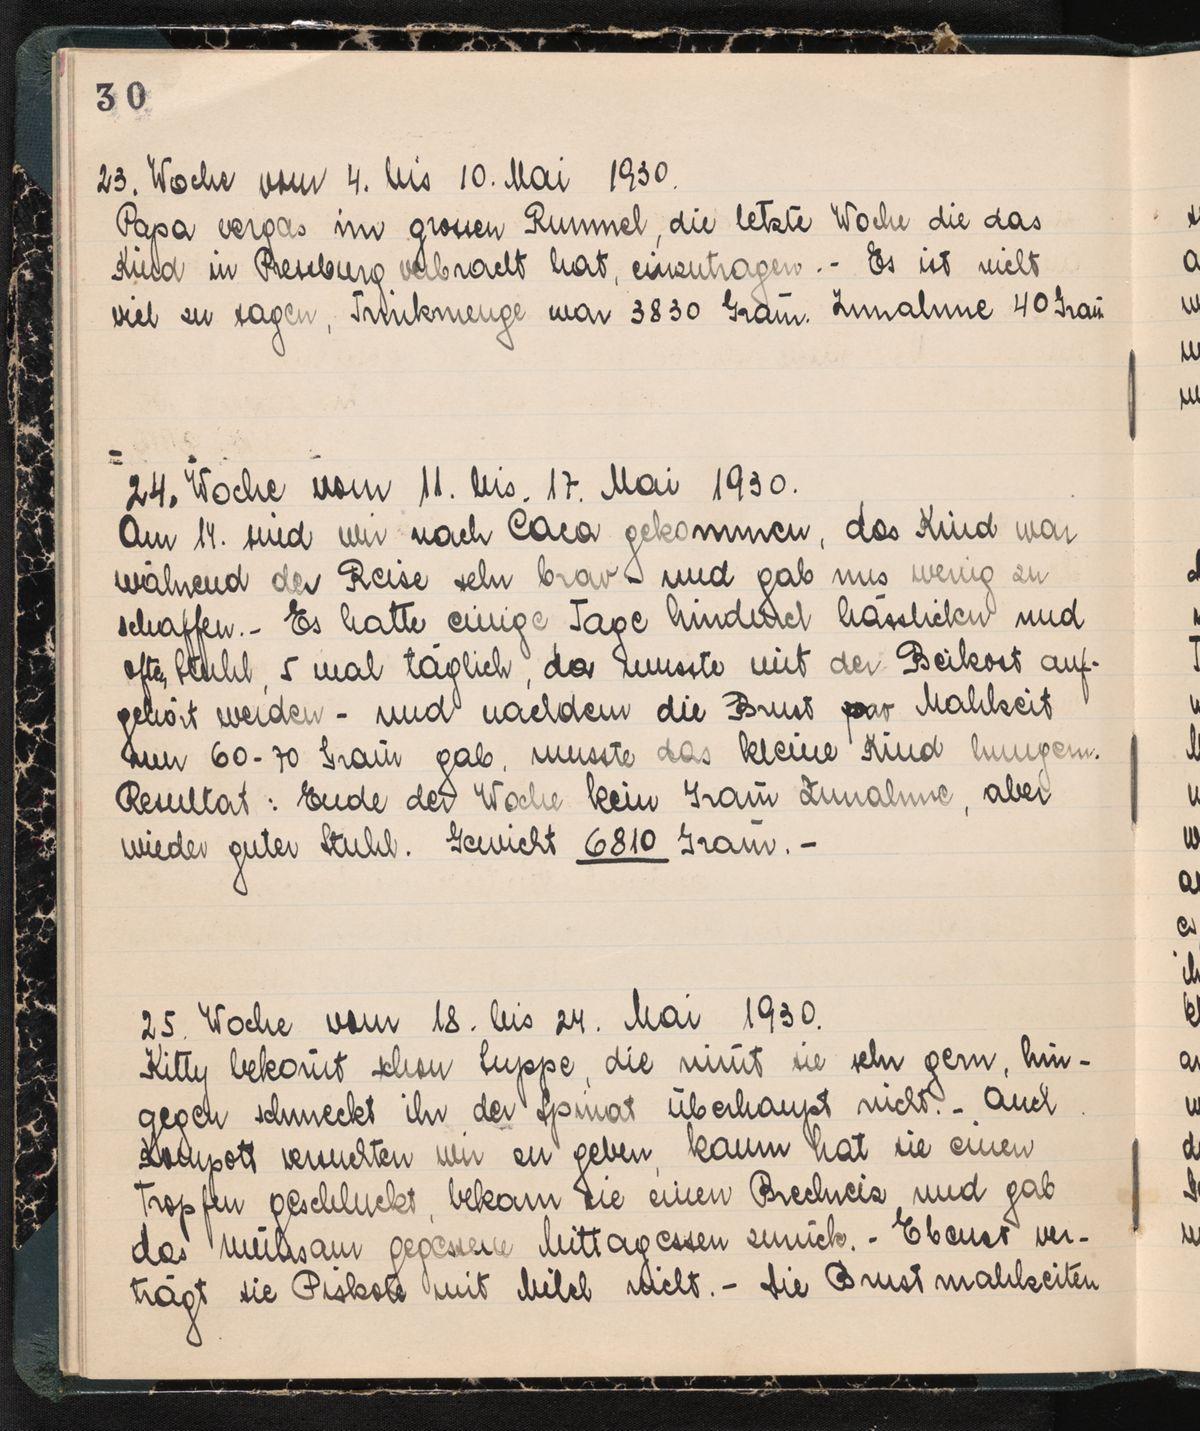 30
23. Woche vom 4. bis 10. Mai 1930.
Papa vergas im grossen Rummel, die letzte Woche die das
Kind in Pressburg verbracht hat, einzutragen.- Es ist nicht
viel zu sagen, Trinkmenge war 3830 Gram̄. Zunahme 40 Gram̄
24. Woche vom 11. bis. 17. Mai 1930.
Am 14. sind wir nach Caca gekommen, das Kind war
während der Reise sehr brav und gab uns wenig zu
schaffen.- Es hatte einige Tage hindurch hässlichen und
often Stuhl, 5 mal täglich, da musste mit der Beikost auf-
gehört werden - und nachdem die Brust pro Mahlzeit
nur 60-70 Gram̄ gab, musste das kleine Kind hungern.
Resultat: Ende der Woche kein Gram̄ Zunahme, aber
wieder guter Stuhl. Gewicht 6810 Gram̄.-
25. Woche vom 18. bis 24. Mai 1930.
Kitty bekom̄t schon Suppe, die nim̄t sie sehr gern, hin-
gegen schmeckt ihr der Spinat überhaupt nicht.- Auch
Kompott versuchten wir zu geben, kaum hat sie einen
Tropfen geschluckt, bekam sie einen Brechreiz und gab
das mühsam gegessene Mittagessen zurück.- Ebenst ver-
trägt sie Piskote mit Milch nicht.- Die Brustmahlzeiten